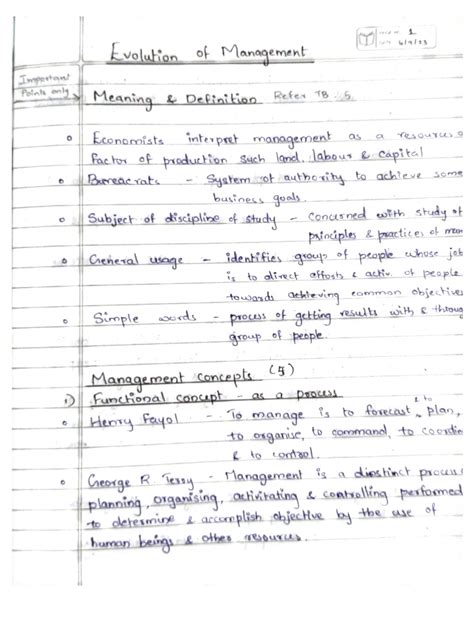 1
6/9/23
Evolution of Management
Important
Points only
Meaning & Definition Refer TB 5.
o Economists interpret management as a resources o
Factor of production such land, labour & capital
o Bureacrats - System of authority to achieve some
business goals.
o Subject of discipline of study - Concerned with study of
principles & practices of man
o General usage - identifies group of people whose job
is to direct effosts & activ. of people
towards achieving common objective
o Simple words - process of getting results with & throug
group of people.
Management concepts (5)
1) Functional concept - as a process
o Henry Fayol - To manage is to forecast & to plan,
to organise, to command, to coordin
& to control.
o George R. Terry - Management is a dinstinct process
planning, organising, activitating & controlling performed
to determine & accomplish objective by the use of
human beings & other resources.